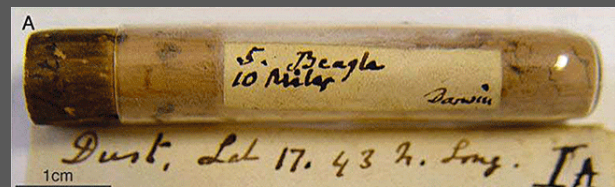 A
5. Beagle
10 Miles
Darwin
Dust, Lat 17. 43 N. Long.
IA
1cm